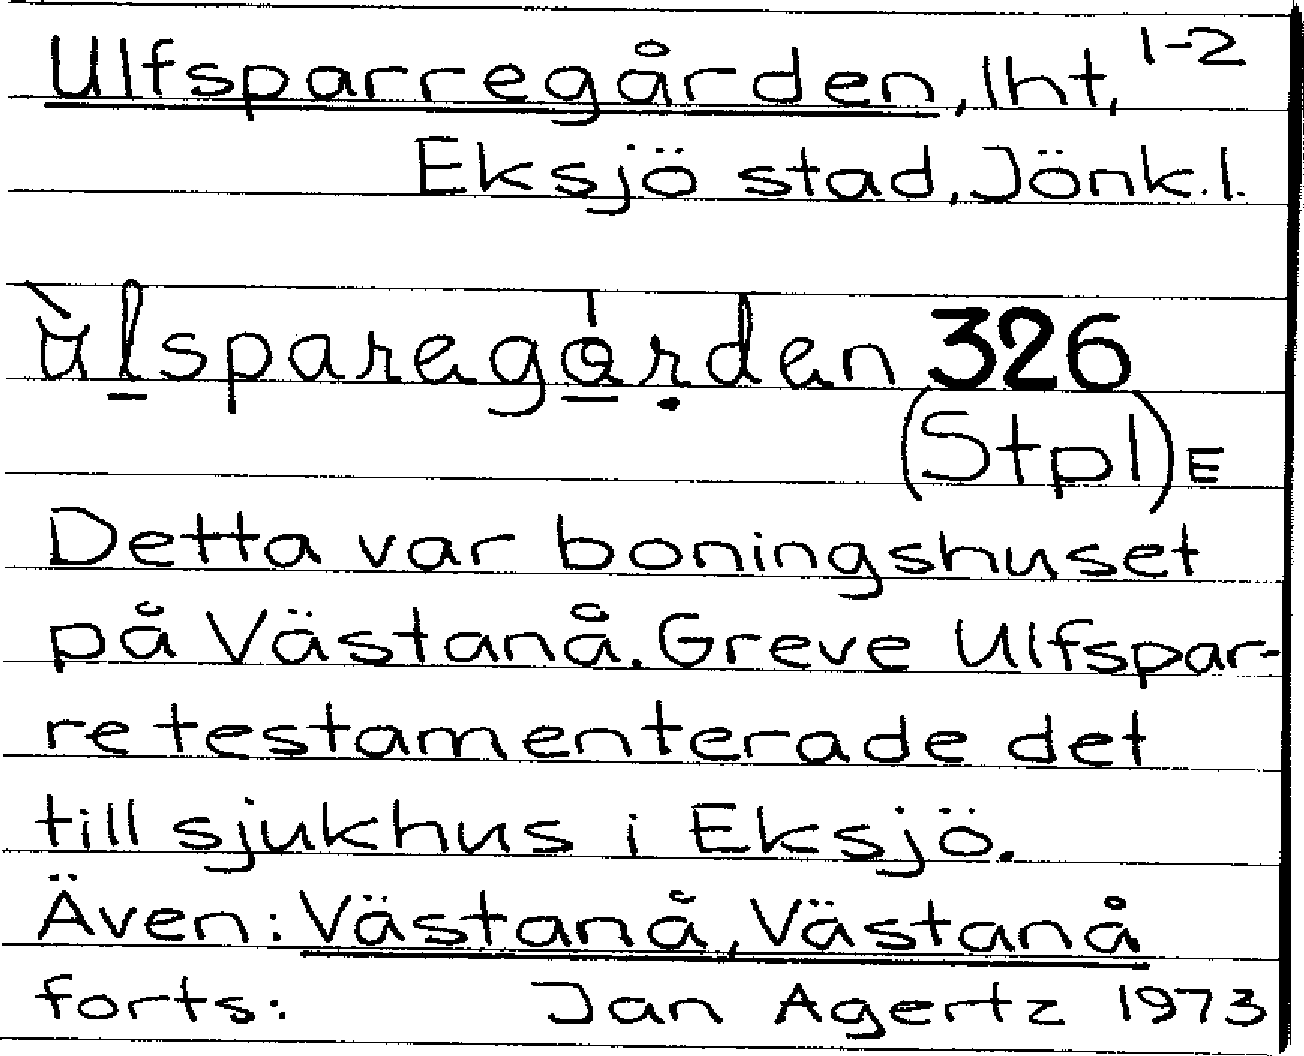 Ulfsparregården, lht, 1-2
Eksjö stad, Jönk.l.
ùlsparegǻrden 326
(Stpl) E
Detta var boningshuset
på Västanå. Greve Ulfspar-
re testamenterade det
till sjukhus i Eksjö.
Även: Västanå, Västanå
forts: Jan Agertz 1973